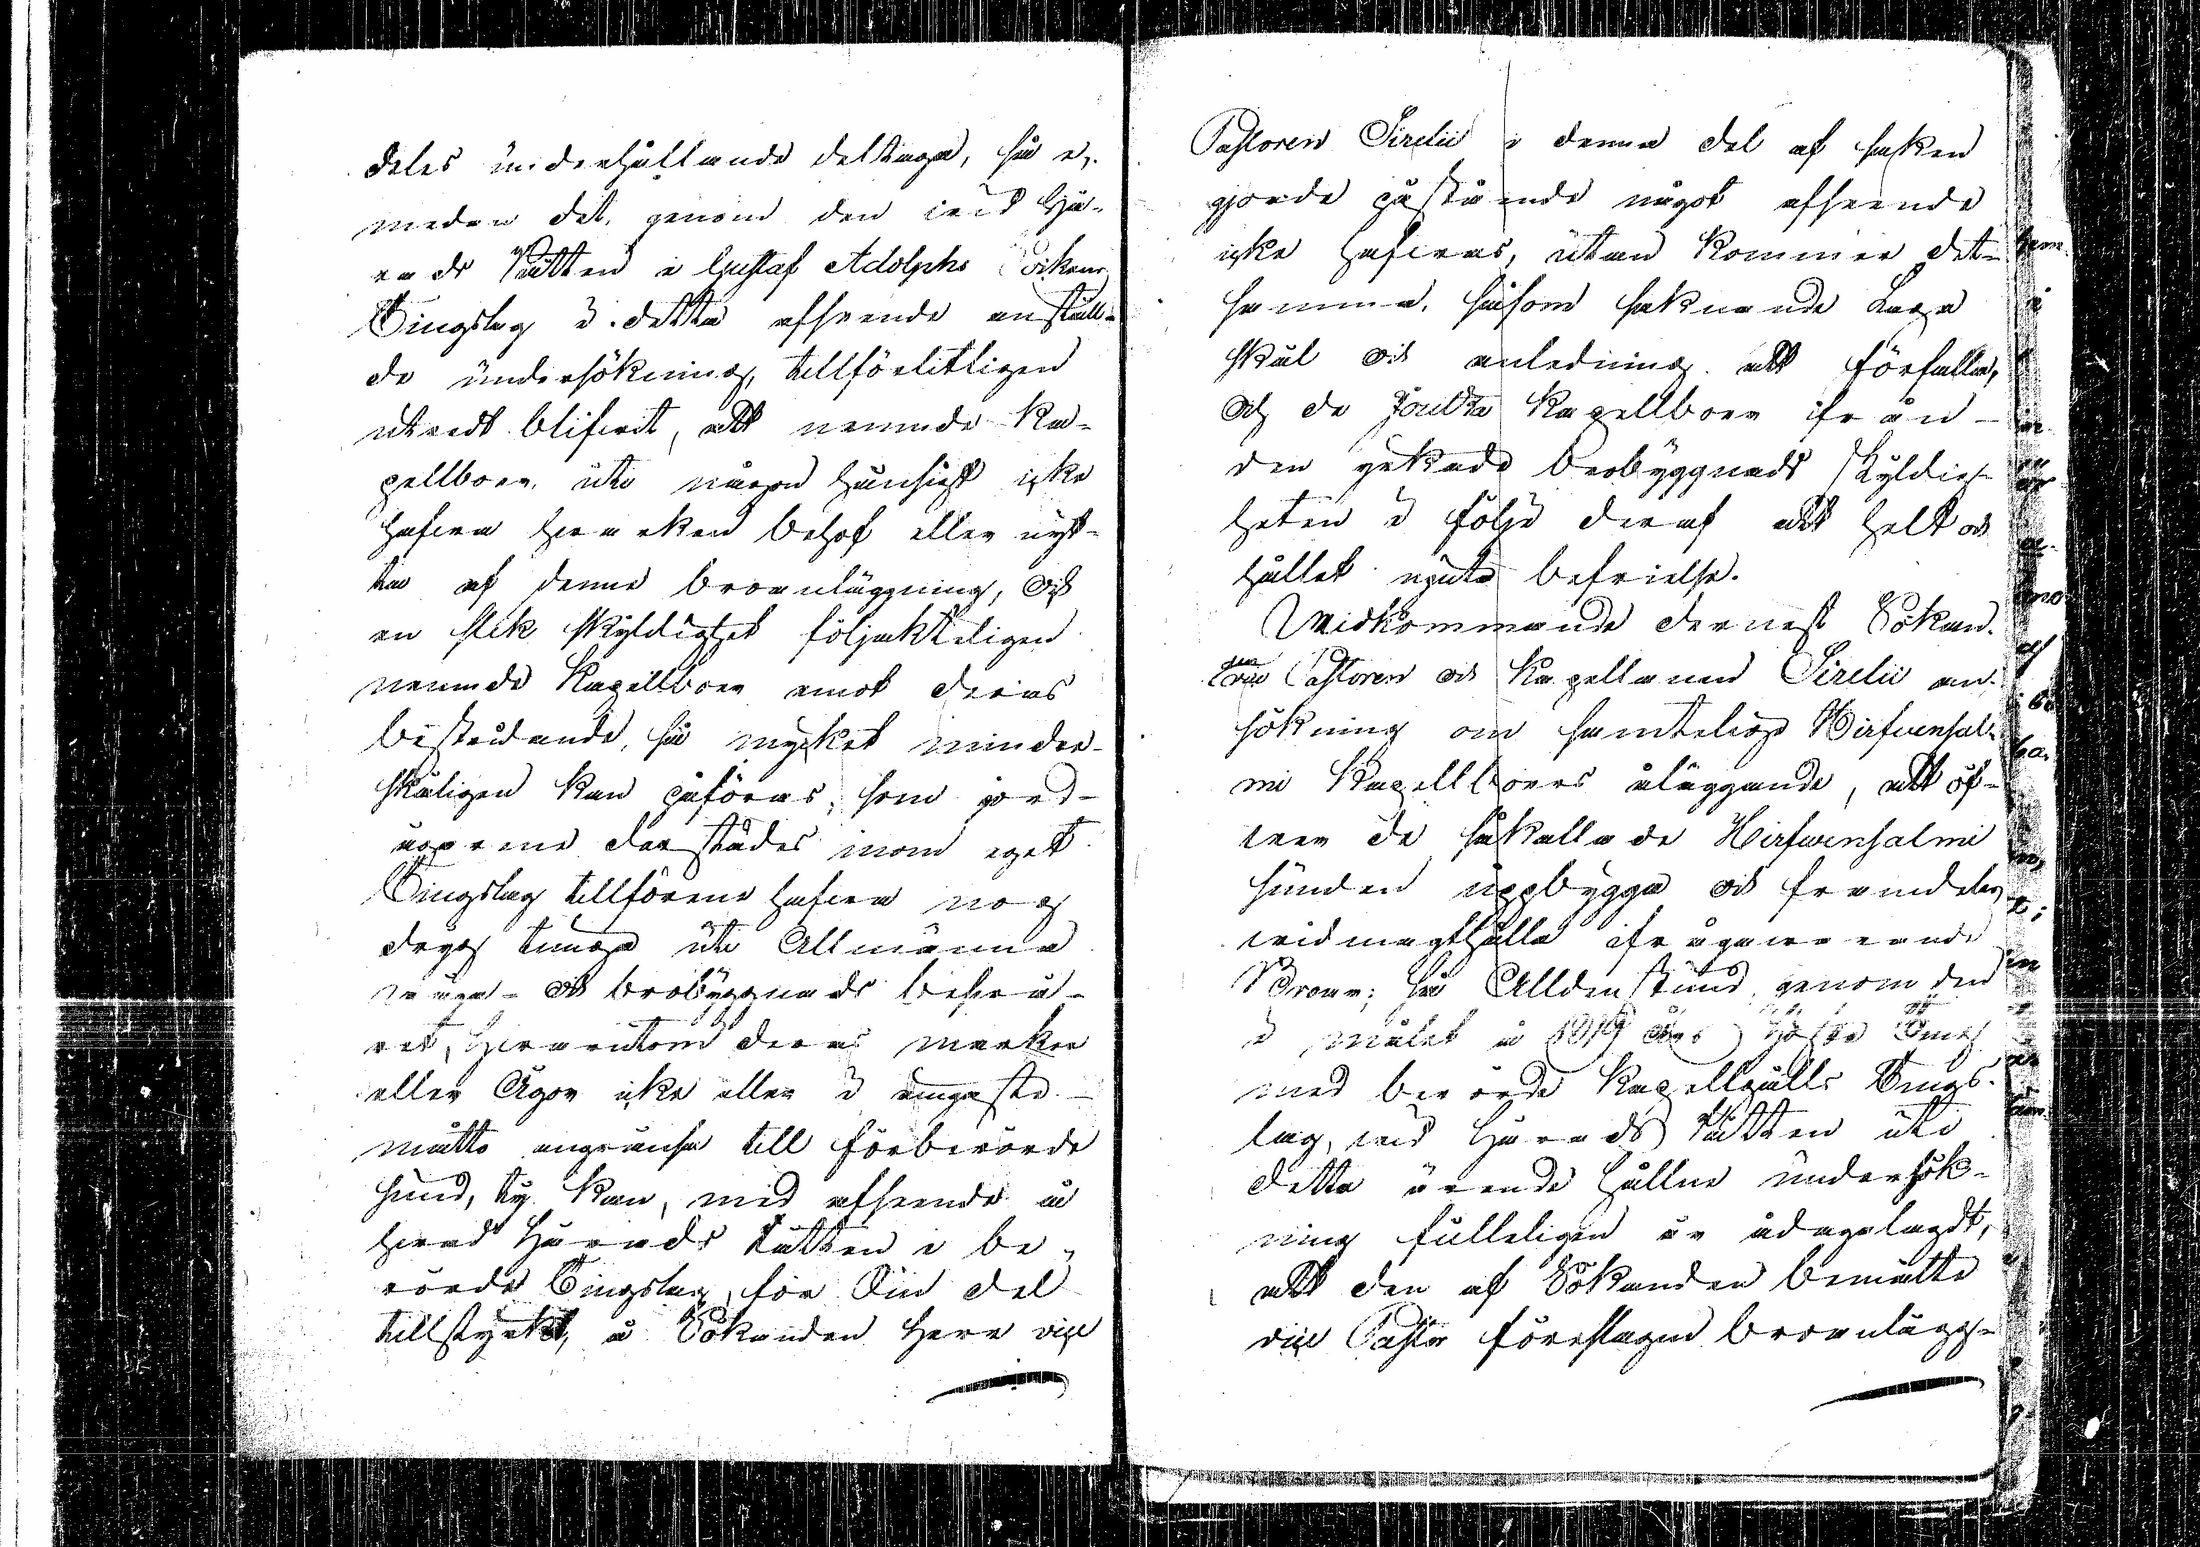 deles underhållande deltaga, så e,
medan det, genom den vid Hä-
rads Rätten i Gustaf Adolphs Sokens
Tingslag i detta afseende anstäl-
de undersökning, tillförlitligen
utredt blifvit, att nämnde Ka-
pellboer, uti någon hänsigt icke
hafva hvarken behof eller nyt-
ta af denne broanläggning, och
en slik skyldighet följakteligen
nämnde Kapellboer emot deras
bestridande, så mycket mindre
skäligen kan påföras, som jord-
ägarene derstädes inom eget
Tingslag tillförene hafva nog
dryg tunga uti Allmänna
väga- och brobyggnads besvä-
ret, hvarutom deras marker
eller Ägor icke eller i ringaste
måtto angränsa till förberörde
sund, ty kan, med afseende å
hvad Härads Rätten i be-
rörde Tingslag, för Sin del
tillstyrkt, å Sökanden Herr vice
Pastoren Sirelii i denna del af saken
gjorde påstående något afseende
icke hafvas, utan kommer det-
samma, såsom saknande Laga
skäl och anledning att förfalla,
Och de Joutsa Kapellboer ifrån
den yrkade brobyggnads skyldig-
heten i följe deraf att helt och
hållet njuta befrielse.
Widkommande dernest Sökan-
den vice Pastoren och Kapellanen Sirelii an-
sökning om samtelige Hirfvensal-
mi Kapellboers åläggande, att öf-
ver de såkallade Hirfvensalmi
sunden uppbygga och framdeles
vidmagthålla ifrågavarande
Broar; så Alldenstund, genom den
i målet å 1819 års Höste Ting
med berörde Kapellgälls Tings-
lag, vid Härads Rätten uti
detta ärende hållne undersök-
ning fulleligen är ådagalagdt,
att den af Sökanden bemälte
vice Pastor föreslagne broanlägg-